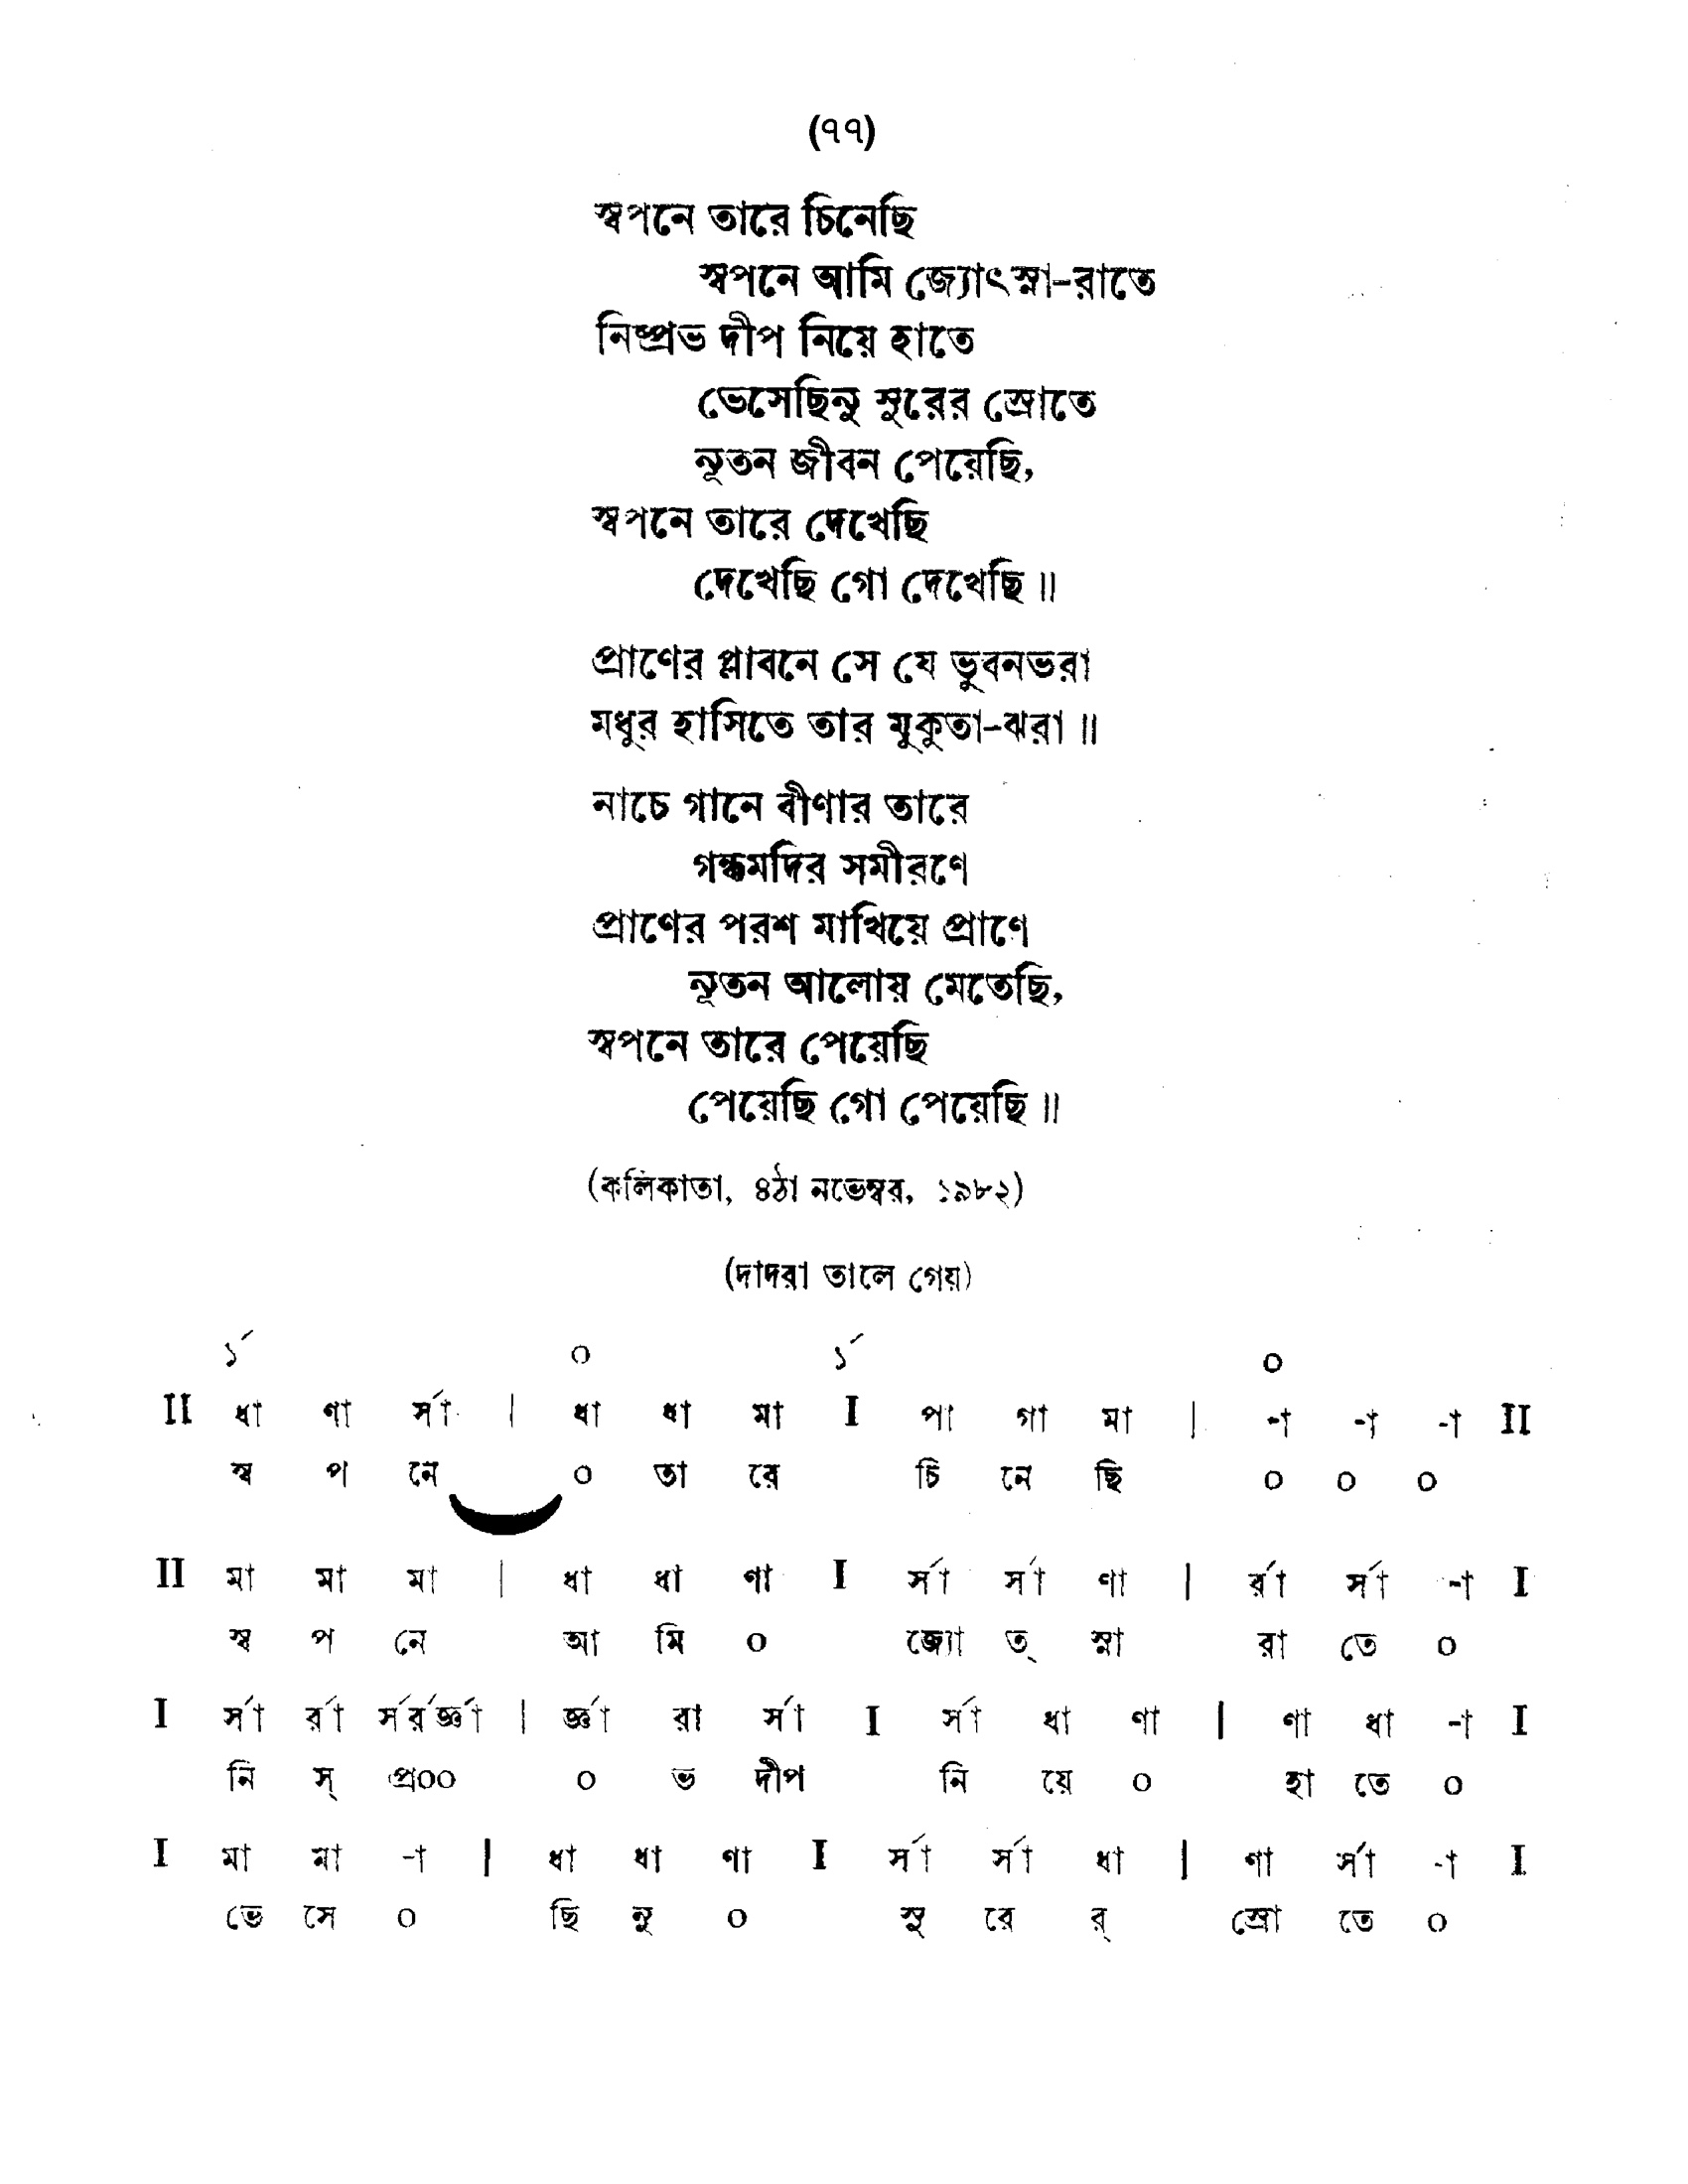 (৭৭)
স্বপনে তারে চিনেছি
স্বপনে আমি জ্যোৎস্না-রাতে
নিষ্প্রভ দীপ নিয়ে হাতে
ভেসেছিনু সুরের স্রোতে
নূতন জীবন পেয়েছি,
স্বপনে তারে দেখেছি
দেখেছি গো দেখেছি॥
প্রাণের প্লাবনে সে যে ভুবনভরা
মধুর হাসিতে তার মুকুতা-ঝরা॥
নাচে গানে বীণার তারে
গন্ধমদির সমীরণে
প্রাণের পরশ মাখিয়ে প্রাণে
নূতন আলোয় মেতেছি,
স্বপনে তারে পেয়েছি
পেয়েছি গো পেয়েছি॥
(কলিকাতা, ৪ঠা নভেম্বর, ১৯৮২)
(দাদরা তালে গেয়)
১´ ০ ১´ ০
II ধা ণা র্সা | ধা ধা মা I পা গা মা | -া -া -া II
স্ব প নে ০ তা রে চি নে ছি ০ ০ ০
II মা মা মা | ধা ধা ণা I র্সা র্সা ণা | র্রা র্সা -া I
স্ব প নে আ মি ০ জ্যো ত্ স্না রা তে ০
I র্সা র্রা র্সর্রর্জ্ঞা | র্জ্ঞা রা র্সা I র্সা ধা ণা | ণা ধা -া I
নি স্ প্র০০ ০ ভ দীপ নি য়ে ০ হা তে ০
I মা মা -া | ধা ধা ণা I র্সা র্সা ধা | ণা র্সা -া I
ভে সে ০ ছি নু ০ সু রে র্ স্রো তে ০